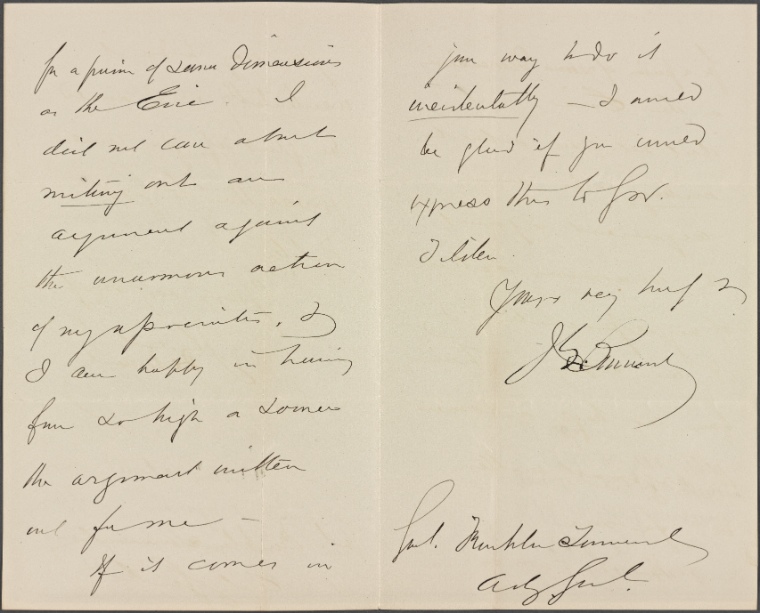 for a prism of same dimensions
as the Erie. I
did not care about
writing out an
argument against
the unanimous action
of my associates, &
I am happy in having
from so high a source
the argument written
out for me —
If it comes in
your way to do it
incidentally — I would
be glad if you would
express this to Gov.
Tilden.
Yours very truly
J
Genl. Franklin Townsend
Adj. Genl.